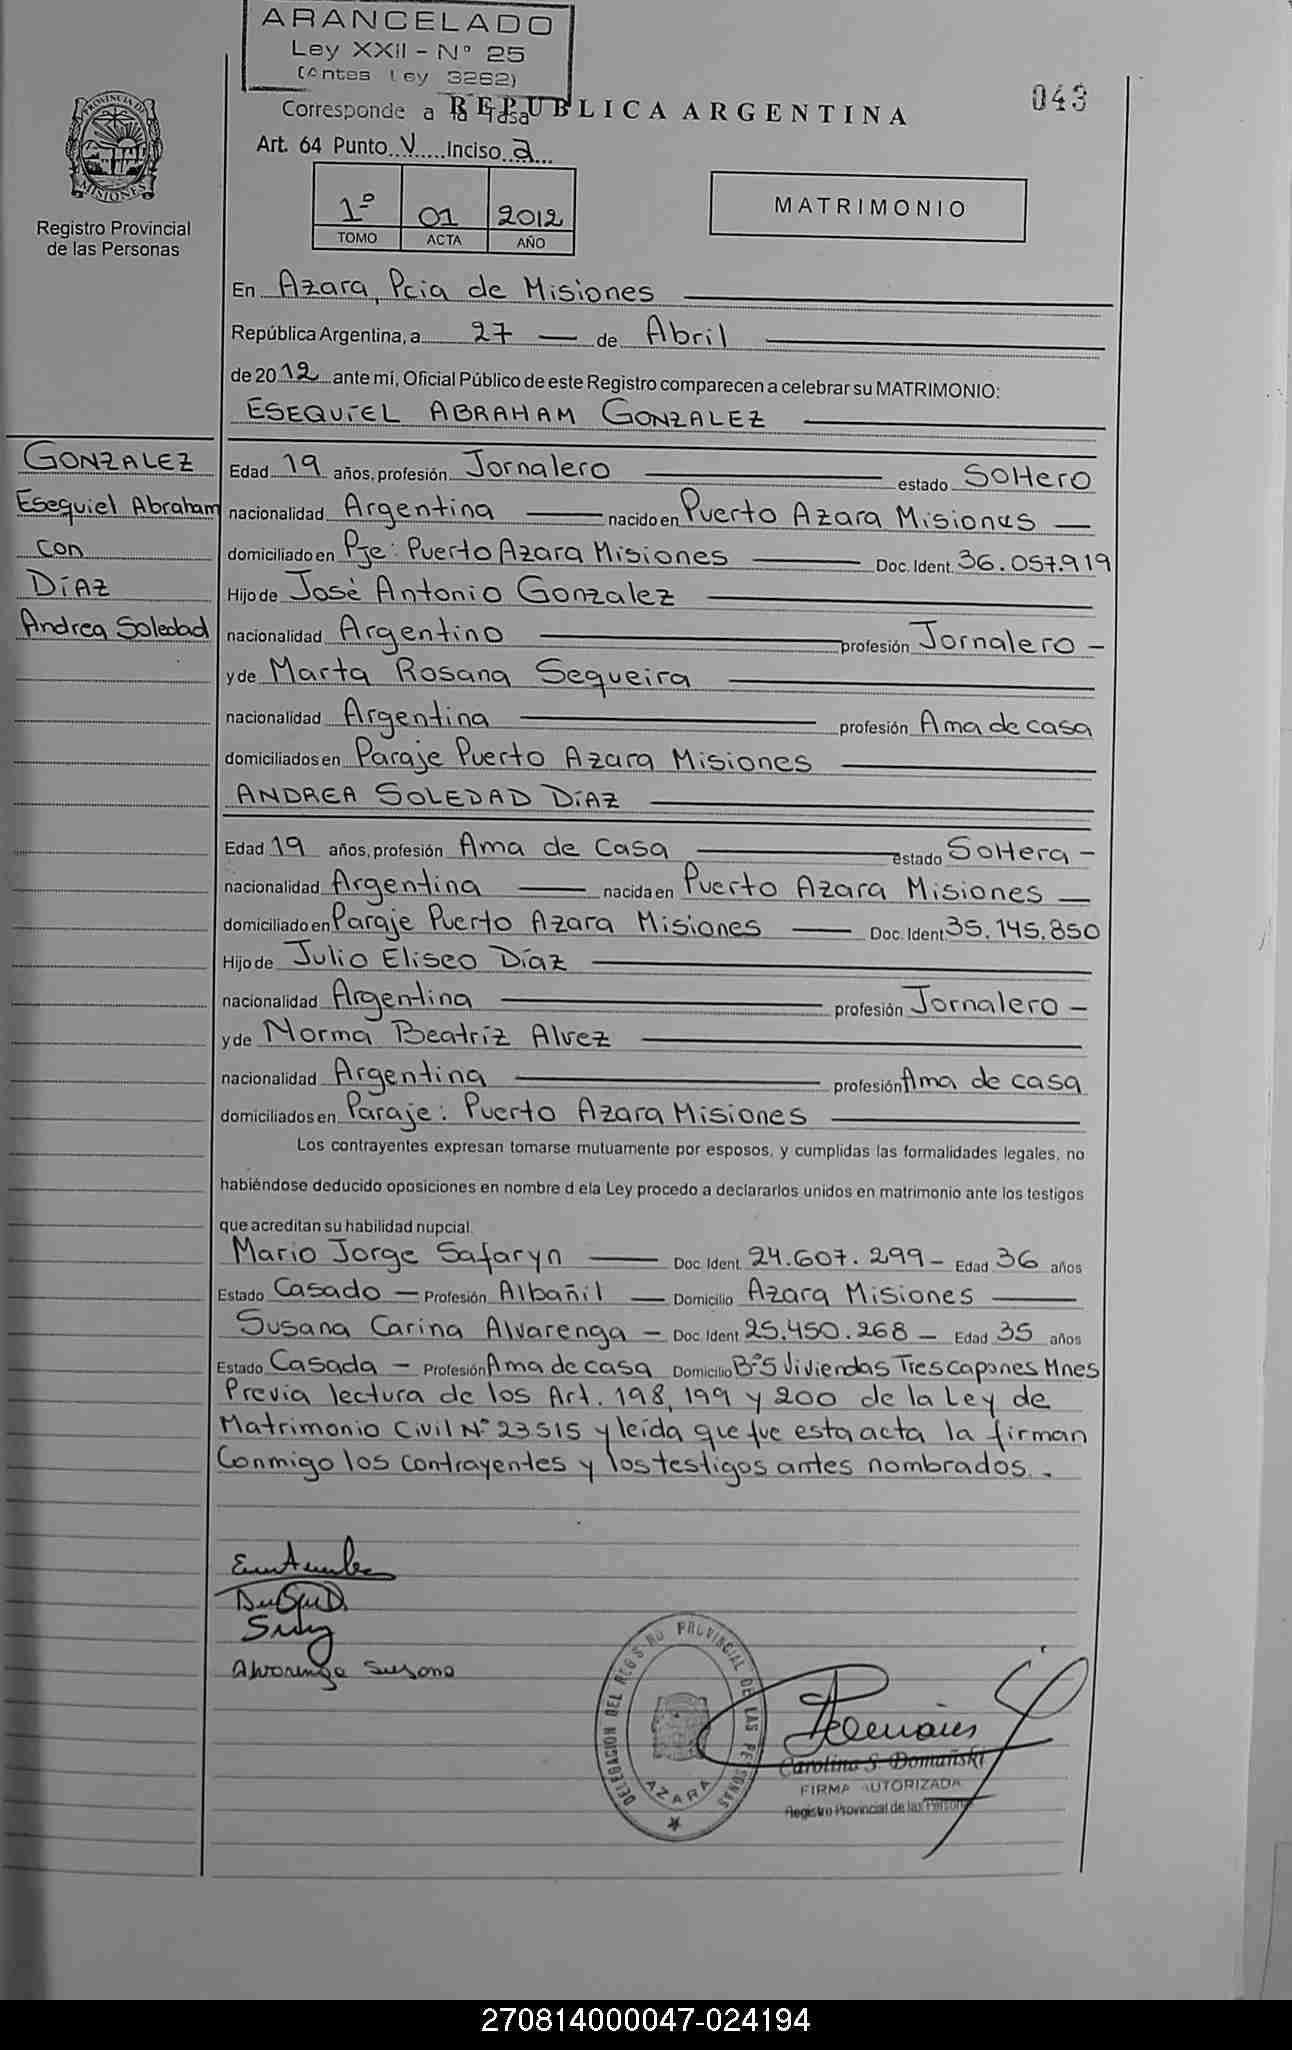 ARANCELADO
Ley XXII - N° 25
(Antes Ley 3262)
Corresponde a la Tasa
REPUBLICA ARGENTINA
043
Art. 64 Punto V Inciso a
PROVINCIA DE MISIONES
Registro Provincial
de las Personas
1º 01 2012
TOMO ACTA AÑO
MATRIMONIO
En Azara, Pcia de Misiones
República Argentina, a 27 de Abril
de 2012 ante mí, Oficial Público de este Registro comparecen a celebrar su MATRIMONIO:
ESEQUIEL ABRAHAM GONZALEZ
GONZALEZ
Esequiel Abraham
con
DíAZ
Andrea Soledad
Edad 19 años, profesión Jornalero estado Soltero
nacionalidad Argentina nacido en Puerto Azara Misiones
domiciliado en Pje: Puerto Azara Misiones Doc. Ident. 36.057.919
Hijo de José Antonio Gonzalez
nacionalidad Argentino profesión Jornalero
y de Marta Rosana Sequeira
nacionalidad Argentina profesión Ama de casa
domiciliados en Paraje Puerto Azara Misiones
ANDREA SOLEDAD DíAZ
Edad 19 años, profesión Ama de Casa estado Soltera
nacionalidad Argentina nacida en Puerto Azara Misiones
domiciliado en Paraje Puerto Azara Misiones Doc. Ident. 35.145.850
Hijo de Julio Eliseo Díaz
nacionalidad Argentina profesión Jornalero
y de Norma Beatriz Alvez
nacionalidad Argentina profesión Ama de casa
domiciliados en Paraje: Puerto Azara Misiones
Los contrayentes expresan tomarse mutuamente por esposos, y cumplidas las formalidades legales, no
habiéndose deducido oposiciones en nombre d ela Ley procedo a declararlos unidos en matrimonio ante los testigos
que acreditan su habilidad nupcial.
Mario Jorge Safaryn Doc. Ident 24.607.299 Edad 36 años
Estado Casado Profesión Albañil Domicilio Azara Misiones
Susana Carina Alvarenga Doc. Ident 25.450.268 Edad 35 años
Estado Casada Profesión Ama de casa Domicilio Bº5 Viviendas Tres Capones Mnes
Previa lectura de los Art. 198, 199 y 200 de la Ley de
Matrimonio Civil Nº 23515 y leída que fue esta acta la firman
Conmigo los contrayentes y los testigos antes nombrados.
Alvarenga Susana
DELEGACION DEL REGISTRO PROVINCIAL DE LAS PERSONAS
AZARA
Carolina S. Domañski
FIRMA AUTORIZADA
Registro Provincial de las Personas
270814000047-024194